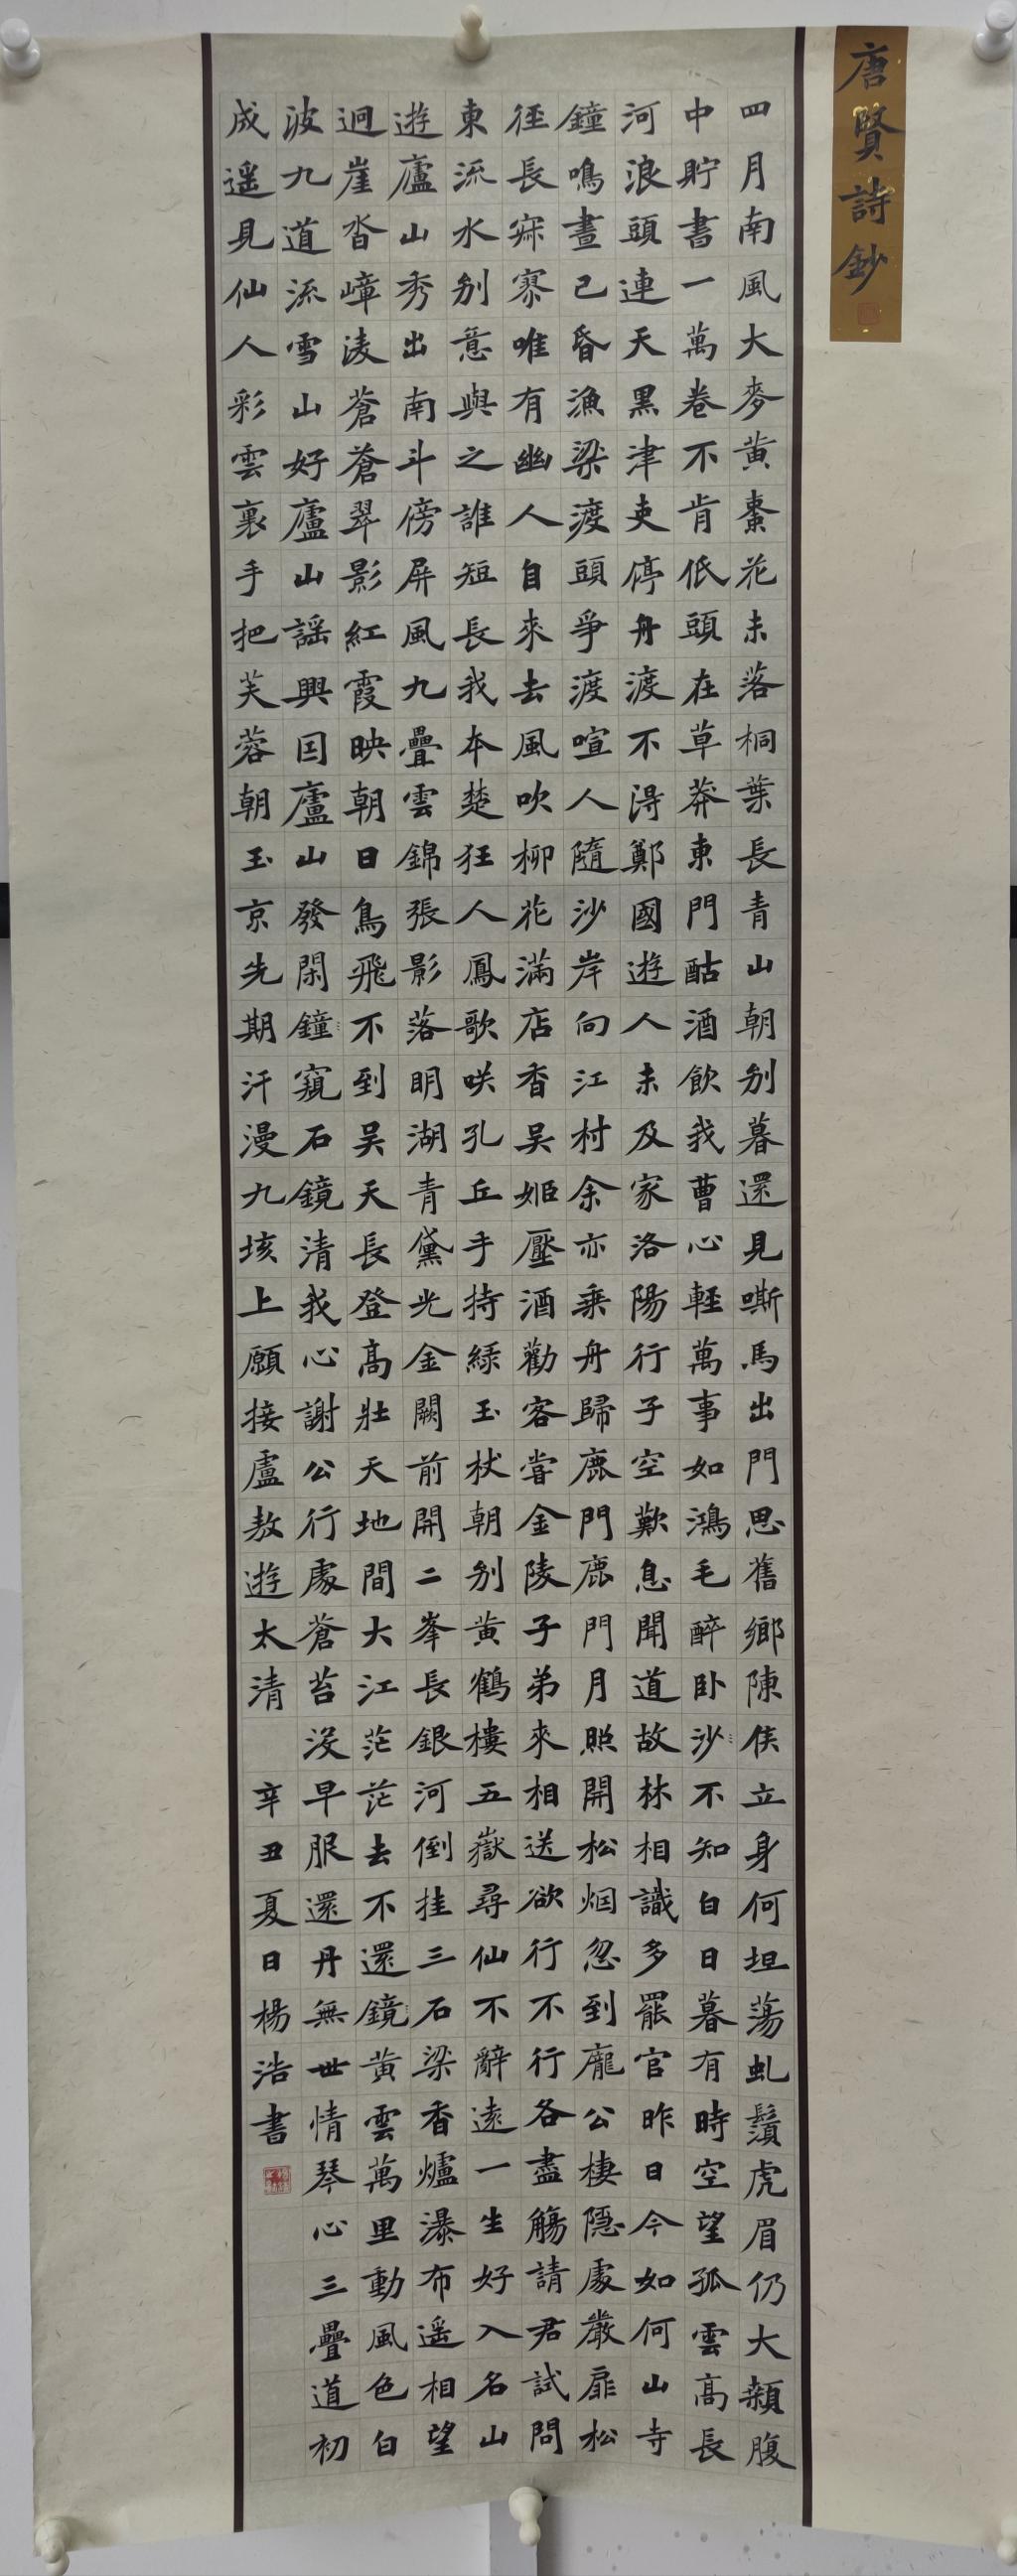 唐賢詩鈔
四月南風大麥黄棗花未落桐葉長青山朝别暮還見嘶馬出門思舊鄉陳侯立身何坦蕩虬鬚虎眉仍大顙腹
中貯書一萬卷不肯低頭在草莽東門酤酒飲我曹心輕萬事如鴻毛醉卧沙不知白日暮有時空望孤雲高長
河浪頭連天黑津吏停舟渡不得鄭國遊人未及家洛陽行子空歎息聞道故林相識多罷官昨日今如何山寺
鐘鳴晝已昏漁梁渡頭爭渡喧人隨沙岸向江村余亦乘舟歸鹿門鹿門月照開松烟忽到龐公棲隱處巖扉松
徑長寂寥唯有幽人自來去風吹柳花滿店香吴姬壓酒勸客嘗金陵子弟來相送欲行不行各盡觴請君試問
東流水别意與之誰短長我本楚狂人鳳歌咲孔丘手持緑玉杖朝别黄鶴樓五嶽尋仙不辭遠一生好入名山
遊廬山秀出南斗傍屏風九疊雲錦張影落明湖青黛光金闕前開二峯長銀河倒挂三石梁香爐瀑布遥相望
迴崖沓嶂凌蒼蒼翠影紅霞映朝日鳥飛不到吴天長登高壯天地間大江茫茫去不還鏡黄雲萬里動風色白
波九道流雪山好廬山謡興因廬山發閑鐘窺石鏡清我心謝公行處蒼苔没早服還丹無世情琴心三疊道初
成遥見仙人彩雲裏手把芙蓉朝玉京先期汗漫九垓上願接盧敖遊太清 辛丑夏日楊浩書